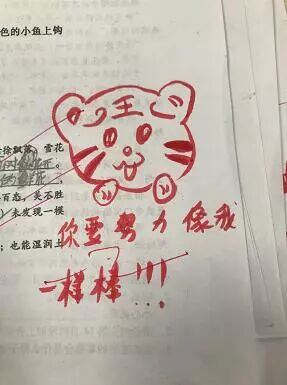 色的小鱼上钩
徐飘落，雪花
百态，美不胜
）未发现一模
；也能湿润土
王
你要努力像我
一样棒!!!
...